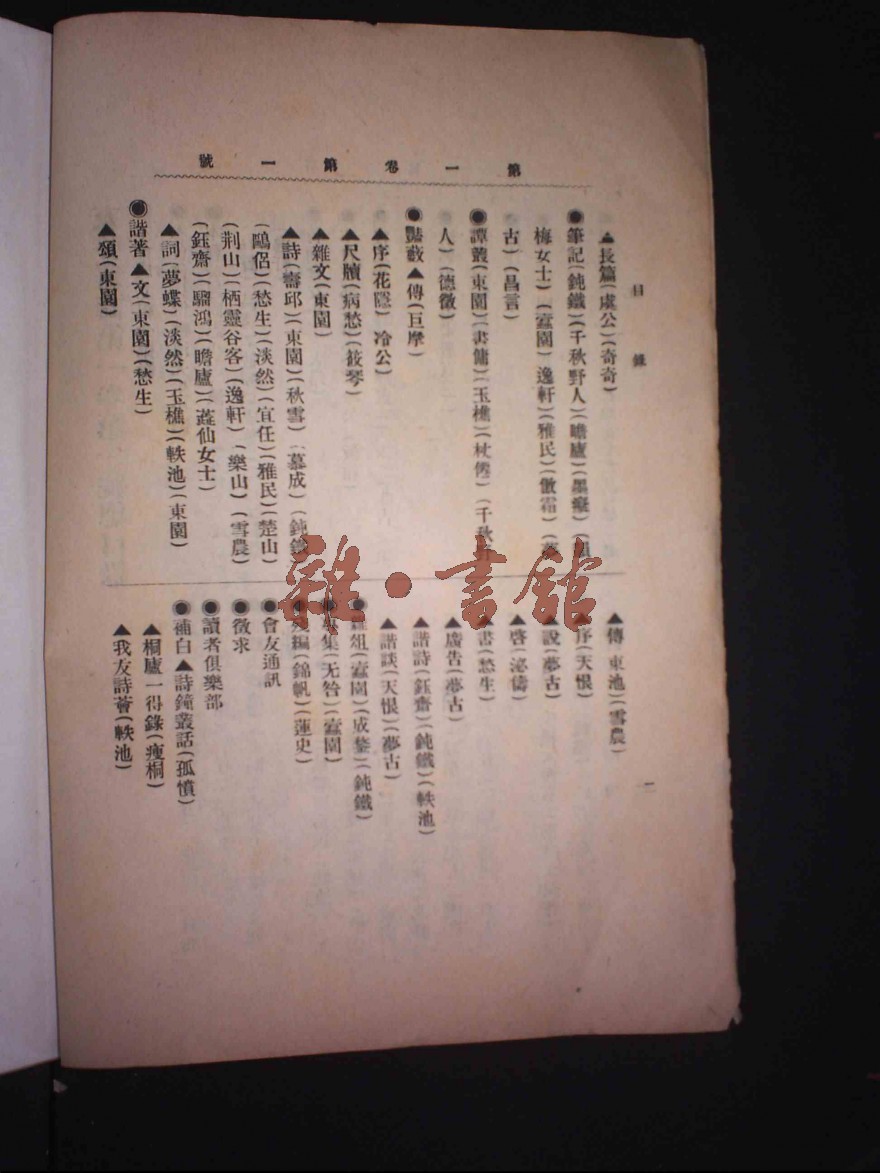 第一卷第一號
目錄
二
▲長篇(虞公)(奇奇)
●筆記(鈍鐵)(千秋野人)(瞻廬)(墨癡)
梅女士)(蠧園)逸軒)(雅民)(傲霜)
古)(昌言)
●譚叢(東園)(書傭)(玉樵)(杖僊)(千秋野
人)(德徵)
●豔藪▲傳(巨摩)
▲序(花隱)冷公)
▲尺牘(病愁)(筱琴)
▲雜文(東園)
▲詩(壽邱)(東園)(秋雪)(慕成)(鈍鐵)
(鷗侶)(愁生)(淡然)(宜任)(雅民)(楚山)
(荆山)(栖靈谷客)(逸軒)(樂山)(雪農)
(鈺齋)(驑鴻)(瞻廬)(蕋仙女士)
▲詞(夢蝶)(淡然)(玉樵)(軼池)(東園)
●諧著▲文(東園)(愁生)
▲頌(東園)
▲傳 東池)(雪農)
▲序(天恨)
▲說(夢古)
▲啓(泌儔)
▲書(愁生)
▲廣告(夢古)
▲諧詩(鈺齋)(鈍鐵)(軼池)
▲諧談(天恨)(夢古)
●俎(蠧園)(成鏊)(鈍鐵)
●集(无咎)(蠧園)
●編(錦帆)(蓮史)
●會友通訊
●徵求
●讀者俱樂部
●補白▲詩鐘叢話(孤憤)
▲桐廬一得錄(瘦桐)
▲我友詩薈(軼池)
雜·書館